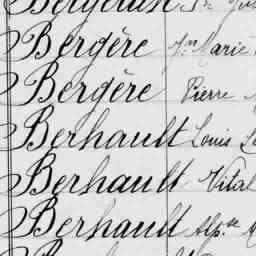 Bergère Jn Marie
Bergère Pierre
Berhault Louis
Berhault Vital
Berhault Alp.se